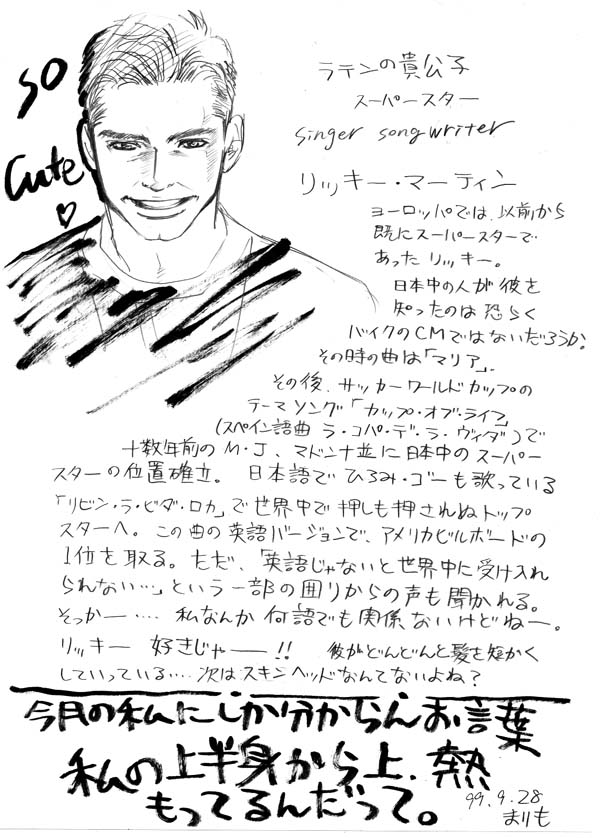 so
Cute
♡
ラテンの貴公子
スーパースター
singer songwriter
リッキー・マーティン
ヨーロッパでは、以前から
既にスーパースターで
あったリッキー。
日本中の人が彼を
知ったのは恐らく
バイクのCMではないだろうか?
その時の曲は「マリア」。
その後、サッカーワールドカップの
テーマソング「カップ・オブ・ライフ」
(スペイン語曲 ラ・コパ・デ・ラ・ヴィダ)で
十数年前のM・J、マドンナ並に日本中のスーパー
スターの位置確立。 日本語でひろみ・ゴーも歌っている
「リビン・ラ・ビダ・ロカ」で世界中で押しも押されぬトップ
スターへ。この曲の英語バージョンで、アメリカビルボードの
1位を取る。ただ、「英語じゃないと世界中に受け入れ
られない…」という一部の囲りからの声も聞かれる。
そっかー…. 私なんか何語でも関係ないけどねー。
リッキー 好きじゃー!! 彼がどんどんと髪を短かく
していっている…. 次はスキンヘッドなんてないよね?
今月の私にしか分からんお言葉
私の上半身から上、熱
もってるんだって。
99.9.28
まりも